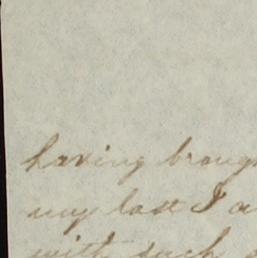 having brough
my last I a
with such